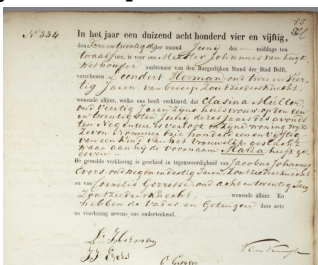 No 334
In het jaar een duizend acht honderd vier en vijftig,
den twee en twintigsten der maand Juny des middags ten
twaalf ure, is voor ons Meester Johannes van Kuyk
Wethouder ambtenaar van den Burgerlijken Stand der Stad Delft,
verschenen Leendert Herman oud twee en veer-
tig Jaren van beroep Zoutziedersknecht
wonende alhier, welke ons heeft verklaard, dat Clasina Muller
oud Veertig Jaren Zyne huisvrouw op den een
en twintigsten Juny dezes Jaars des avonds
ten Negen ure is verlost in zyne woning wyk
Zeven Nommer vyf honderd een en vyftig
van een Kind van het Vrouwelyk geslacht
waar aan hij de voornaam Maria heeft ge-
geven
De gemelde verklaring is geschied in tegenwoordigheid van Jacobus Johannes
Evers oud negen en dertig Jaren, Zoutziedersknecht
en van Cornelis Gerresse oud acht en twintig Jaren
Zoutziedersknecht wonende alhier. En
hebben de Vader en Getuigen deze acte
na voorlezing nevens ons onderteekend.
L. Herman
JJ Evers